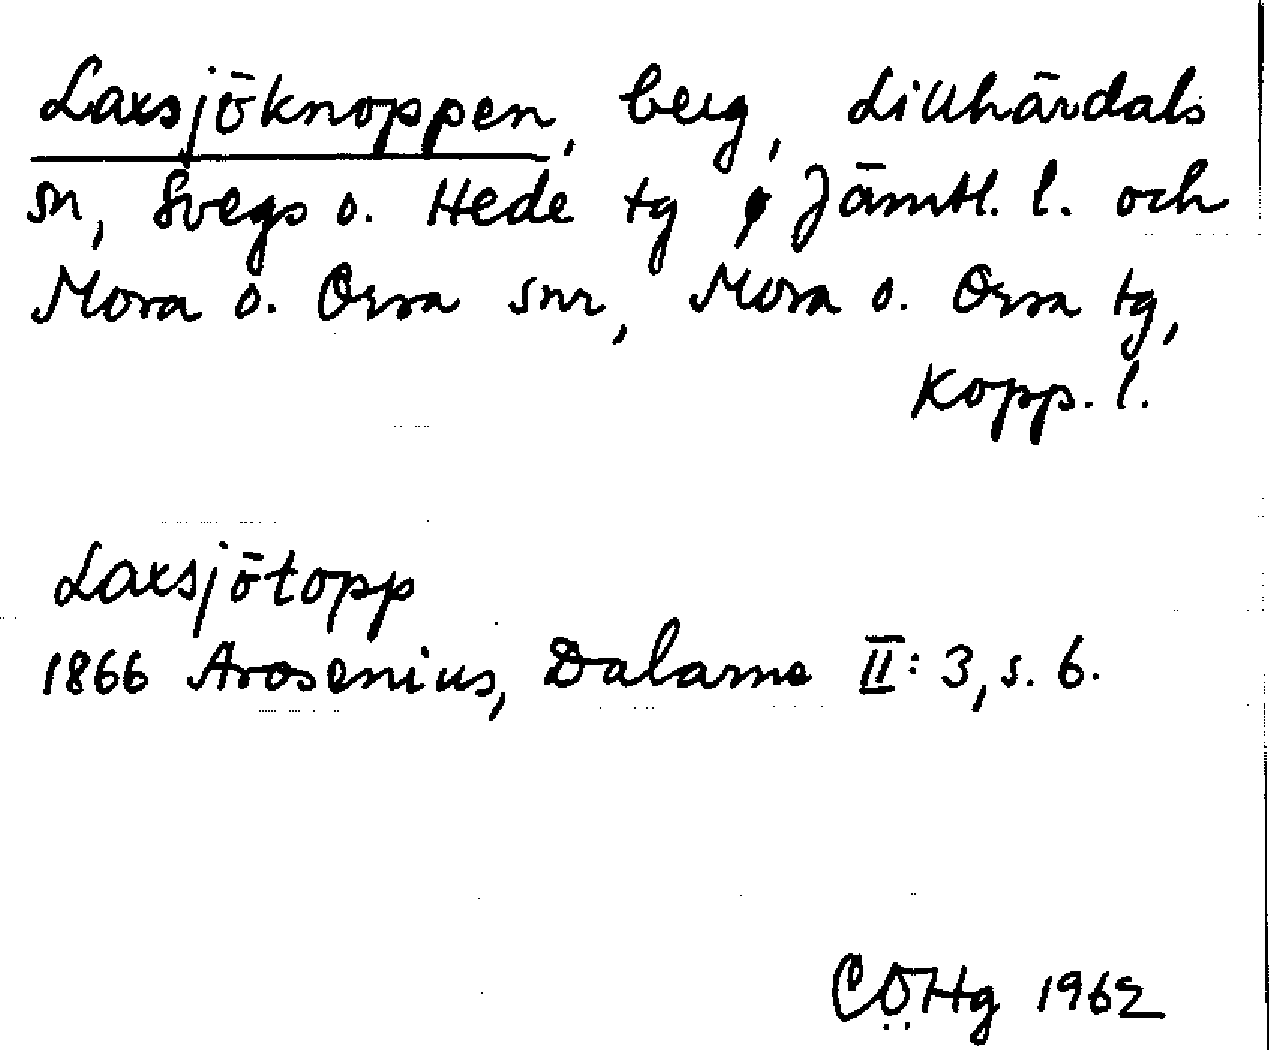 Laxsjöknoppen, berg, Lillhärdals
sn, Svegs o. Hede tg, Jämtl. l. och
Mora o. Orsa snr, Mora o. Orsa tg,
Kopp. l.
Laxsjötopp
1866 Arosenius, Dalarne II: 3, s. 6.
CÖHg 1962